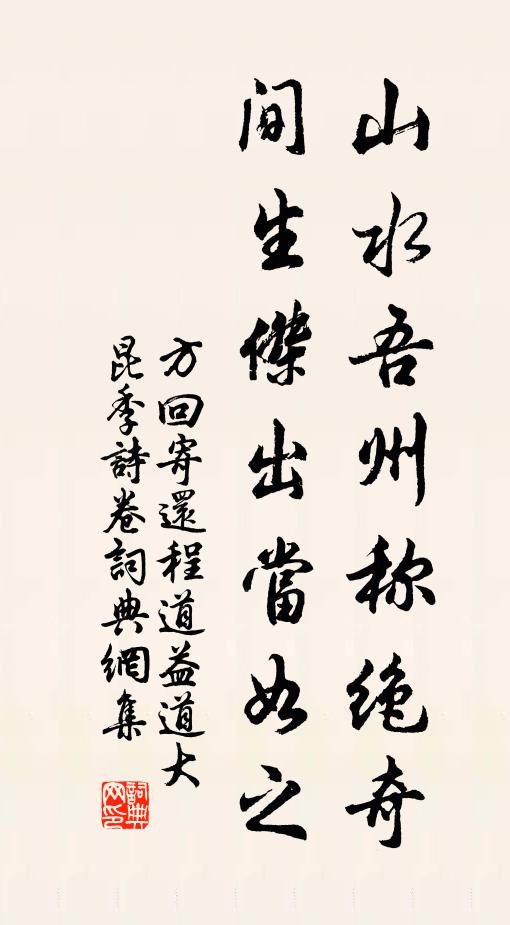 山水吾州称绝奇
间生傑出當如之
方回寄還程道益道大
昆季詩卷詞典網集
詞典网印